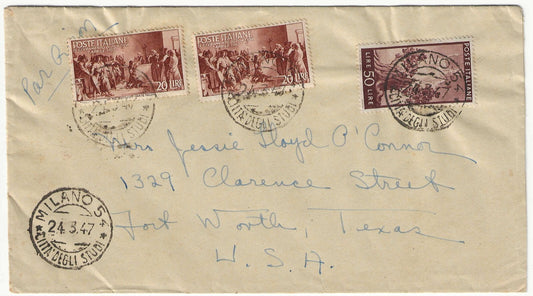 Par avion
POSTE ITALIANE
20 LIRE
POSTE ITALIANE
20 LIRE
50 LIRE
POSTE ITALIANE
24.3.47
CITTÀ DEGLI STUDI
24.3.47
CITTÀ DEGLI STUDI
MILANO 54
24.3.47
CITTÀ DEGLI STUDI
Mrs Jessie Lloyd O'Connor
1329 Clarence Street
Fort Worth, Texas
U.S.A.
MILANO 54
24.3.47
CITTÀ DEGLI STUDI